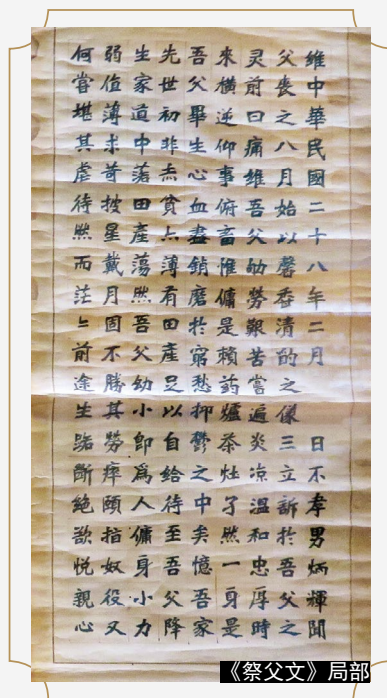 維中華民國二十八年二月 日不孝男炳輝聞
父喪之八月始以馨香清的之儀三立訴於吾父之
灵前曰痛維吾父劬勞艱苦嘗遍炎凉溫和忠厚時
來橫逆仰事俯畜惟傭是賴葯爐茶灶孑然一身是
吾父畢生心血盡銷磨於窮愁抑鬱之中矣憶吾家
先世初非赤貧亦薄有田產足以自給待至吾父降
生家道中落田產蕩然吾父幼小即為人傭身小力
弱值薄求苛披星戴月固不勝其勞瘁頤指奴役又
何嘗堪其虐待然而茫々前途生路斷絕欲悅親心
《祭父文》局部